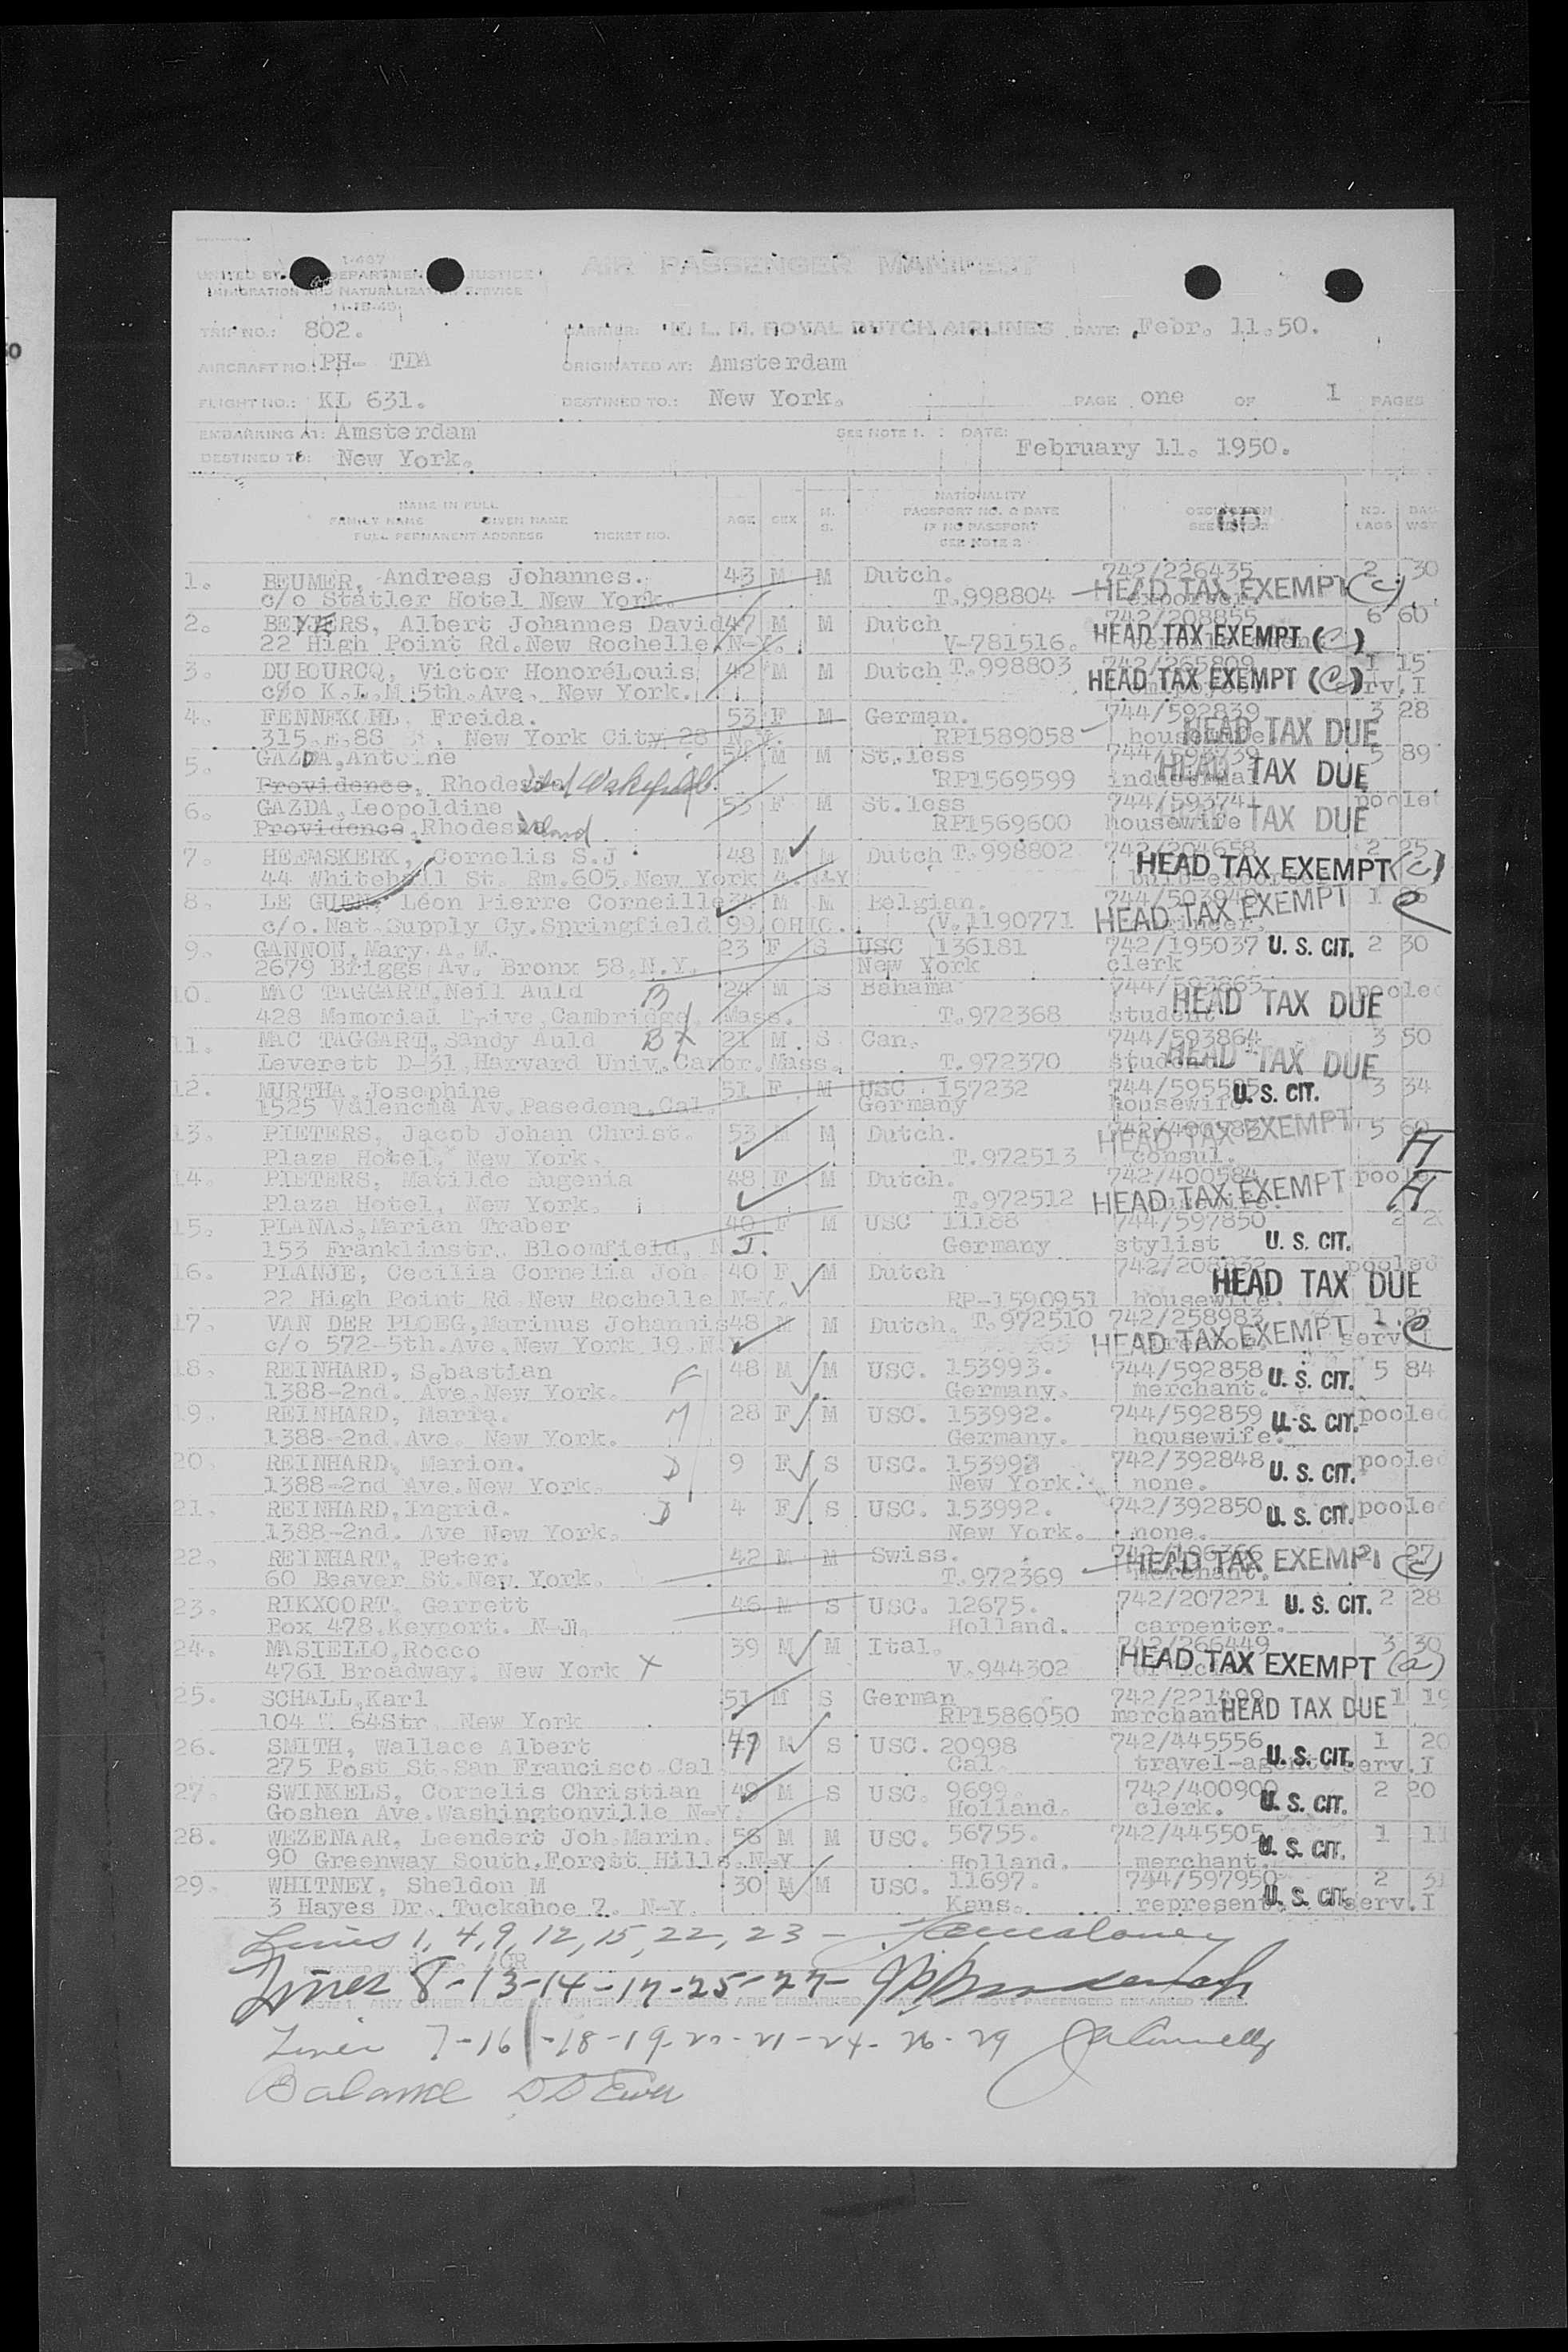 I-467
UNITED STATES DEPARTMENT OF JUSTICE
IMMIGRATION AND NATURALIZATION SERVICE
11-15-45
AIR PASSENGER MANIFEST
TRIP NO.: 802. CARRIER: K. L. M. ROYAL DUTCH AIRLINES DATE: Febr. 11.50.
AIRCRAFT NO.: PH- TDA ORIGINATED AT: Amsterdam
FLIGHT NO.: KL 631. DESTINED TO.: New York. PAGE one OF 1 PAGES
EMBARKING AT: Amsterdam SEE NOTE 1. DATE: February 11. 1950.
DESTINED TO: New York.
NAME IN FULL
FAMILY NAME GIVEN NAME
FULL PERMANENT ADDRESS TICKET NO.
AGE SEX M. S.
NATIONALITY
PASSPORT NO. & DATE
IF NO PASSPORT
SEE NOTE 2
OCCUPATION
NO. BAG
1. BEUMER, Andreas Johannes. 43 M M Dutch. 742/226435 2 30
c/o Statler Hotel New York. T.998804 HEAD TAX EXEMPT (c)
2. BEYERS, Albert Johannes David 47 M M Dutch 742/208855 6 60
22 High Point Rd.New Rochelle N-Y. V-781516. HEAD TAX EXEMPT (c)
3. DUBOURCQ, Victor HonoréLouis 42 M M Dutch T.998803 742/265809 1 15
c/o K.L.M.5th.Ave. New York. HEAD TAX EXEMPT (c) serv.I
4. FENNEKOHL, Freida. 53 F M German. 744/592839 3 28
315 E.88 , New York City 28 N.Y. RP1589058 housewife HEAD TAX DUE
5. GAZDA,Antoine 54 M M St.less 5 89
Providence, Rhodes Island Wakefield. RP1569599 industrial HEAD TAX DUE
6. GAZDA,Leopoldine 53 F M St.less 744/593741 pooled
Providence,Rhodes Island RP1569600 housewife HEAD TAX DUE
7. HEEMSKERK, Cornelis S.J 48 M M Dutch T.998802 742/204658 2 25
44 Whitehall St. Rm.605.New York 4. N-Y HEAD TAX EXEMPT (c)
8. LE GUEN, Léon Pierre Corneille M M Belgian. 1
c/o.Nat.Supply Cy.Springfield 99,OHIO. (V.)1190771 HEAD TAX EXEMPT c
9. GANNON,Mary A.M. 23 F S USC 136181 742/195037 U. S. CIT. 2 30
2679 Briggs Av. Bronx 58.N.Y. New York clerk
10. MAC TAGGART,Neil Auld B 24 M S Bahama 744/593865 pooled
428 Memorial Drive,Cambridge, Mass. T.972368 student HEAD TAX DUE
11. MAC TAGGART,Sandy Auld B X 21 M. S Can. 744/593864 3 50
Leverett D-31 Harvard Univ.Cambr. Mass. T.972370 student HEAD TAX DUE
12. MIRTHA,Josephine 51 F M USC 157232 3 34
1525 Valencia Av.Pasedena,Cal. Germany housewife U. S. CIT.
13. PIETERS, Jacob Johan Christ. 53 M M Dutch. 5 60
Plaza Hotel, New York. T.972513 consul. HEAD TAX EXEMPT H
14. PIETERS, Matilde Eugenia 48 F M Dutch. 742/400584 pooled
Plaza Hotel, New York. T.972512 HEAD TAX EXEMPT H
15. PLANAS,Marian Traber 40 F M USC 11188 744/597850 2
153 Franklinstr. Bloomfield, N.J. Germany stylist U. S. CIT.
16. PLANJE, Cecilia Cornelia Joh 40 F M Dutch pooled
22 High Point Rd New Rochelle N-Y. RP-1590951 housewife. HEAD TAX DUE
17. VAN DER PLOEG,Marinus Johannis 48 M M Dutch. T.972510 742/258983 1
c/o 572-5th.Ave.New York 19.N HEAD TAX EXEMPT serv.I
18. REINHARD, Sebastian F 48 M M USC. 153993. 744/592858 U. S. CIT. 5 84
1388-2nd. Ave.New York. Germany. merchant.
19. REINHARD, Maria. M 28 F M USC. 153992. 744/592859 U. S. CIT. pooled
1388-2nd.Ave. New York. Germany. housewife.
20. REINHARD, Marion. D 9 F S USC. 153992 742/392848 U. S. CIT. pooled
1388-2nd Ave.New York. New York. none.
21. REINHARD,Ingrid. D 4 F S USC. 153992. 742/392850 U. S. CIT. pooled
1388-2nd. Ave New York. New York. none.
22. REINHART, Peter. 42 M M Swiss. 2 27
60 Beaver St.New York. T.972369 merchant. HEAD TAX EXEMPT (c)
23. RIKXOORT, Garrett 46 M S USC. 12675. 742/207221 U. S. CIT. 2 28
Box 478.Keyport. N-J. Holland. carpenter.
24. MASIELLO,Rocco 39 M M Ital. 742/266449 3 30
4761 Broadway, New York X V.944302 HEAD TAX EXEMPT (a)
25. SCHALL,Karl 51 M S German 1 19
104 W 64Str. New York RP1586050 merchant HEAD TAX DUE
26. SMITH, Wallace Albert 47 M S USC. 20998 742/445556 1 20
275 Post St.San Francisco Cal Cal travel-agent. U. S. CIT. serv.I
27. SWINKELS, Cornelis Christian 48 M S USC. 9699. 742/400900 2 20
Goshen Ave.Washingtonville N-Y. Holland. clerk. U. S. CIT.
28. WEZENAAR, Leendert Joh.Marin. 58 M M USC. 56755. 742/445505 1 11
90 Greenway South.Forest Hills.N-Y Holland. merchant. U. S. CIT.
29. WHITNEY, Sheldon M 30 M M USC. 11697. 744/597950 2 31
3 Hayes Dr. Tuckahoe 7. N-Y. Kans. represent. U. S. CIT. serv.I
Lines 1, 4, 9, 12, 15, 22, 23 -
Lines 8-13-14-17-25-27-
Lines 7-16-18-19-20-21-24-26-29
Balance